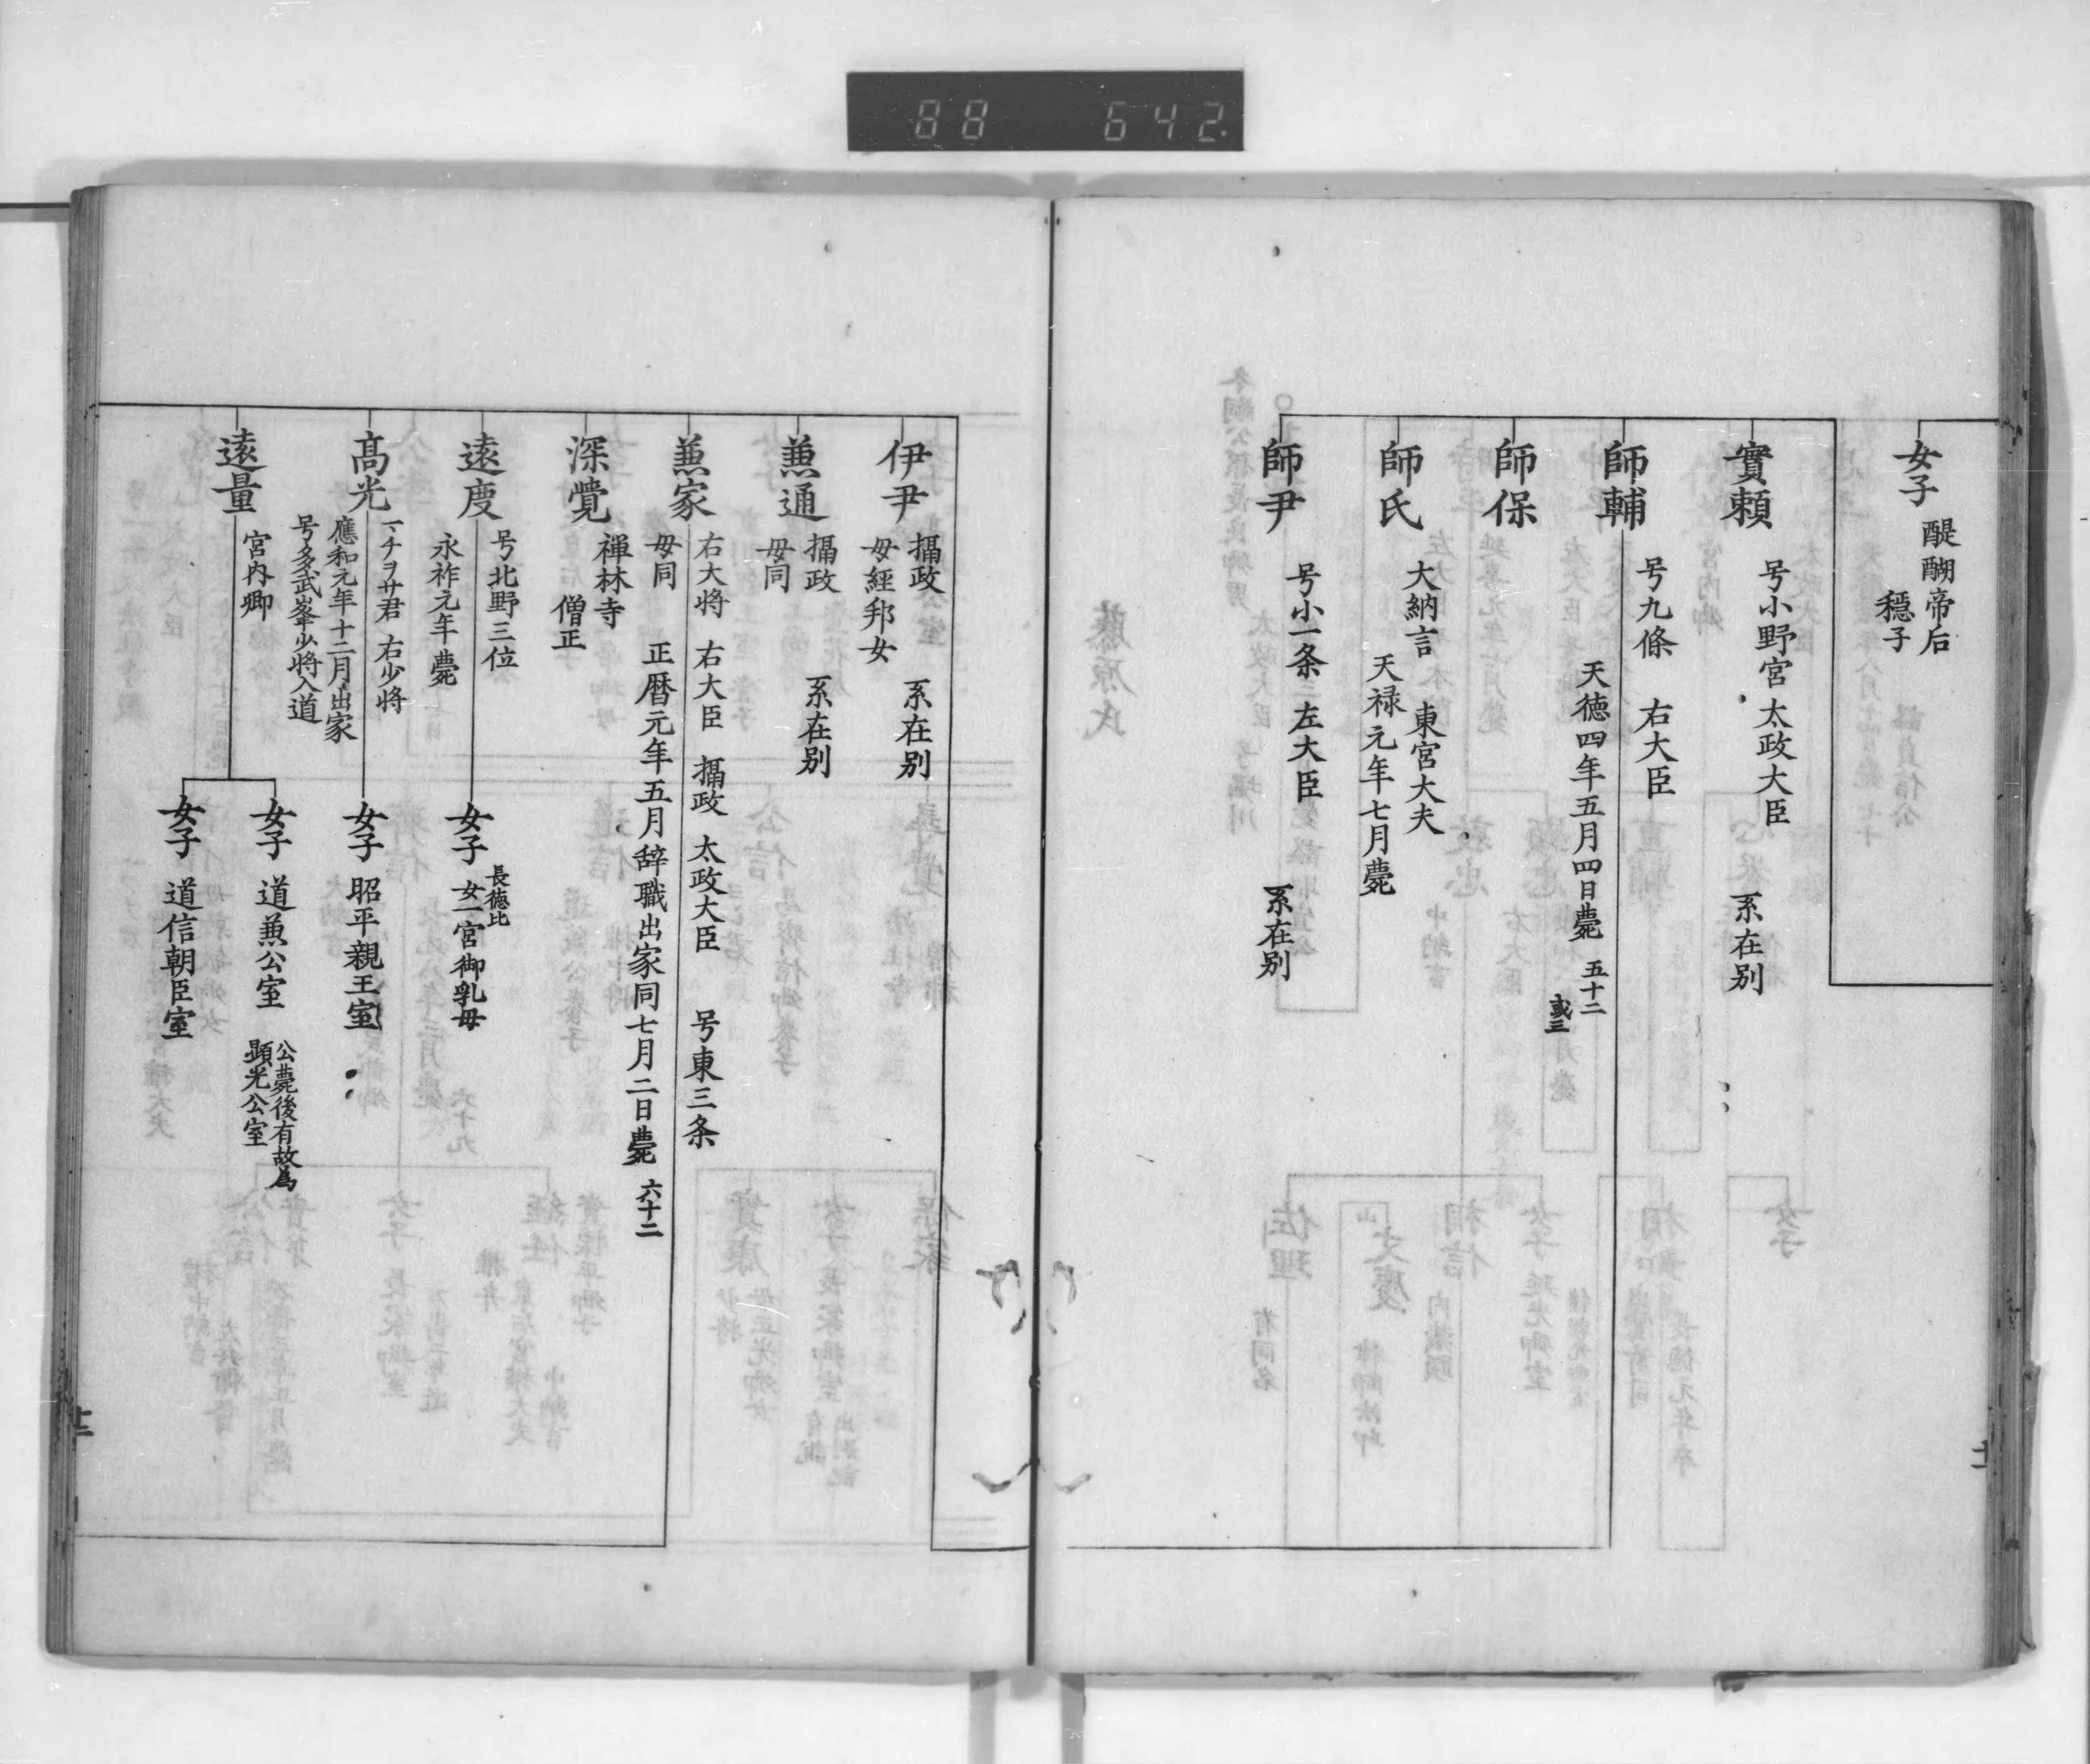 88 642
女子
醍醐帝后
穏子
實頼
号小野宮 太政大臣
系在別
師輔
号九條 右大臣
天徳四年五月四日薨 五十二
或三
師保
師氏
大納言 東宮大夫
天禄元年七月薨
師尹
号小一条 左大臣
系在別
十一
伊尹
攝政
母經邦女
系在別
兼通
攝政
母同
系在別
兼家
右大将 右大臣 攝政 太政大臣 号東三条
母同 正暦元年五月辞職出家同七月二日薨 六十二
深覺
禅林寺
僧正
遠度
号北野三位
永祚元年薨
女子
長徳比
女一宮御乳母
高光
マチヲサ君 右少将
應和元年十二月出家
号多武峯少将入道
女子 昭平親王室
遠量
宮内卿
女子 道兼公室
公薨後有故為
顕光公室
女子 道信朝臣室
十二